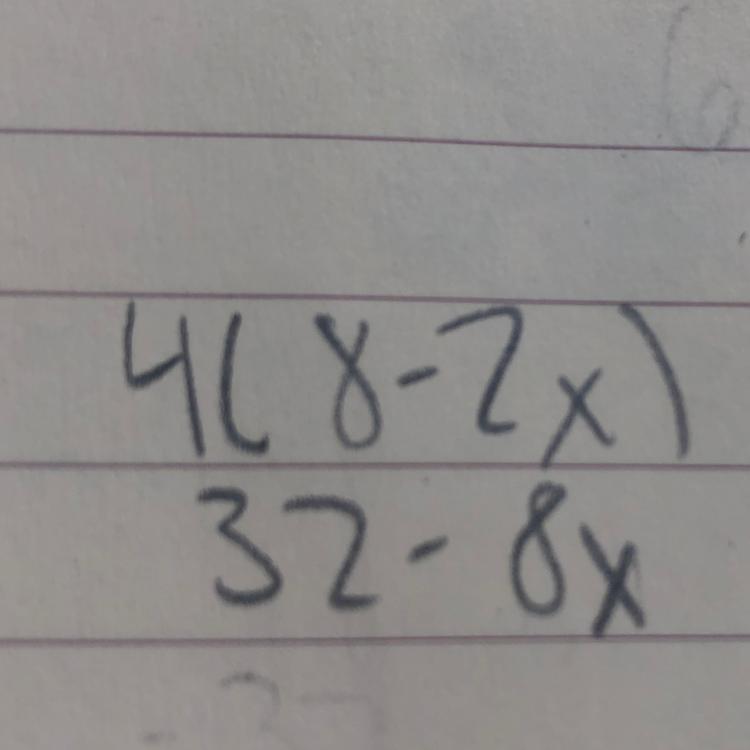 4(8-2x)
32-8x